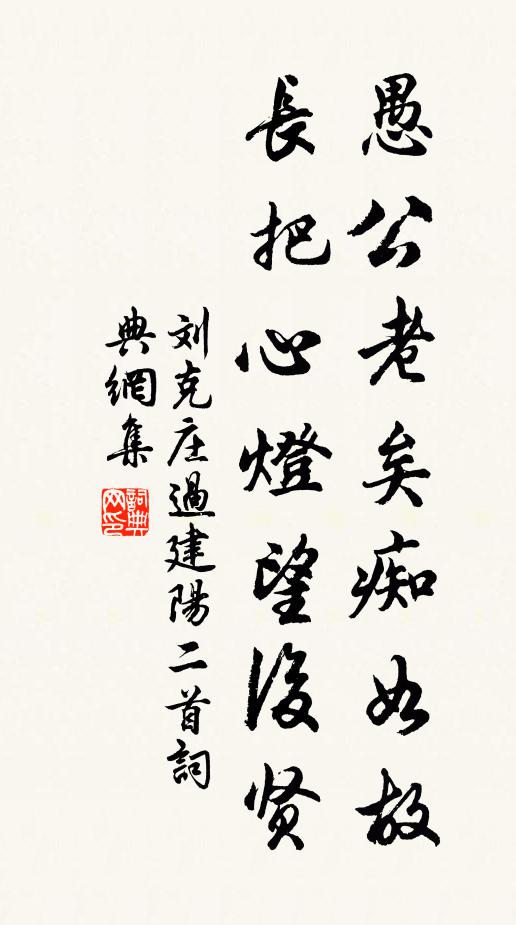 愚公老矣痴如故
長把心燈望後贤
刘克庄過建陽二首詞
典網集
詞典网印